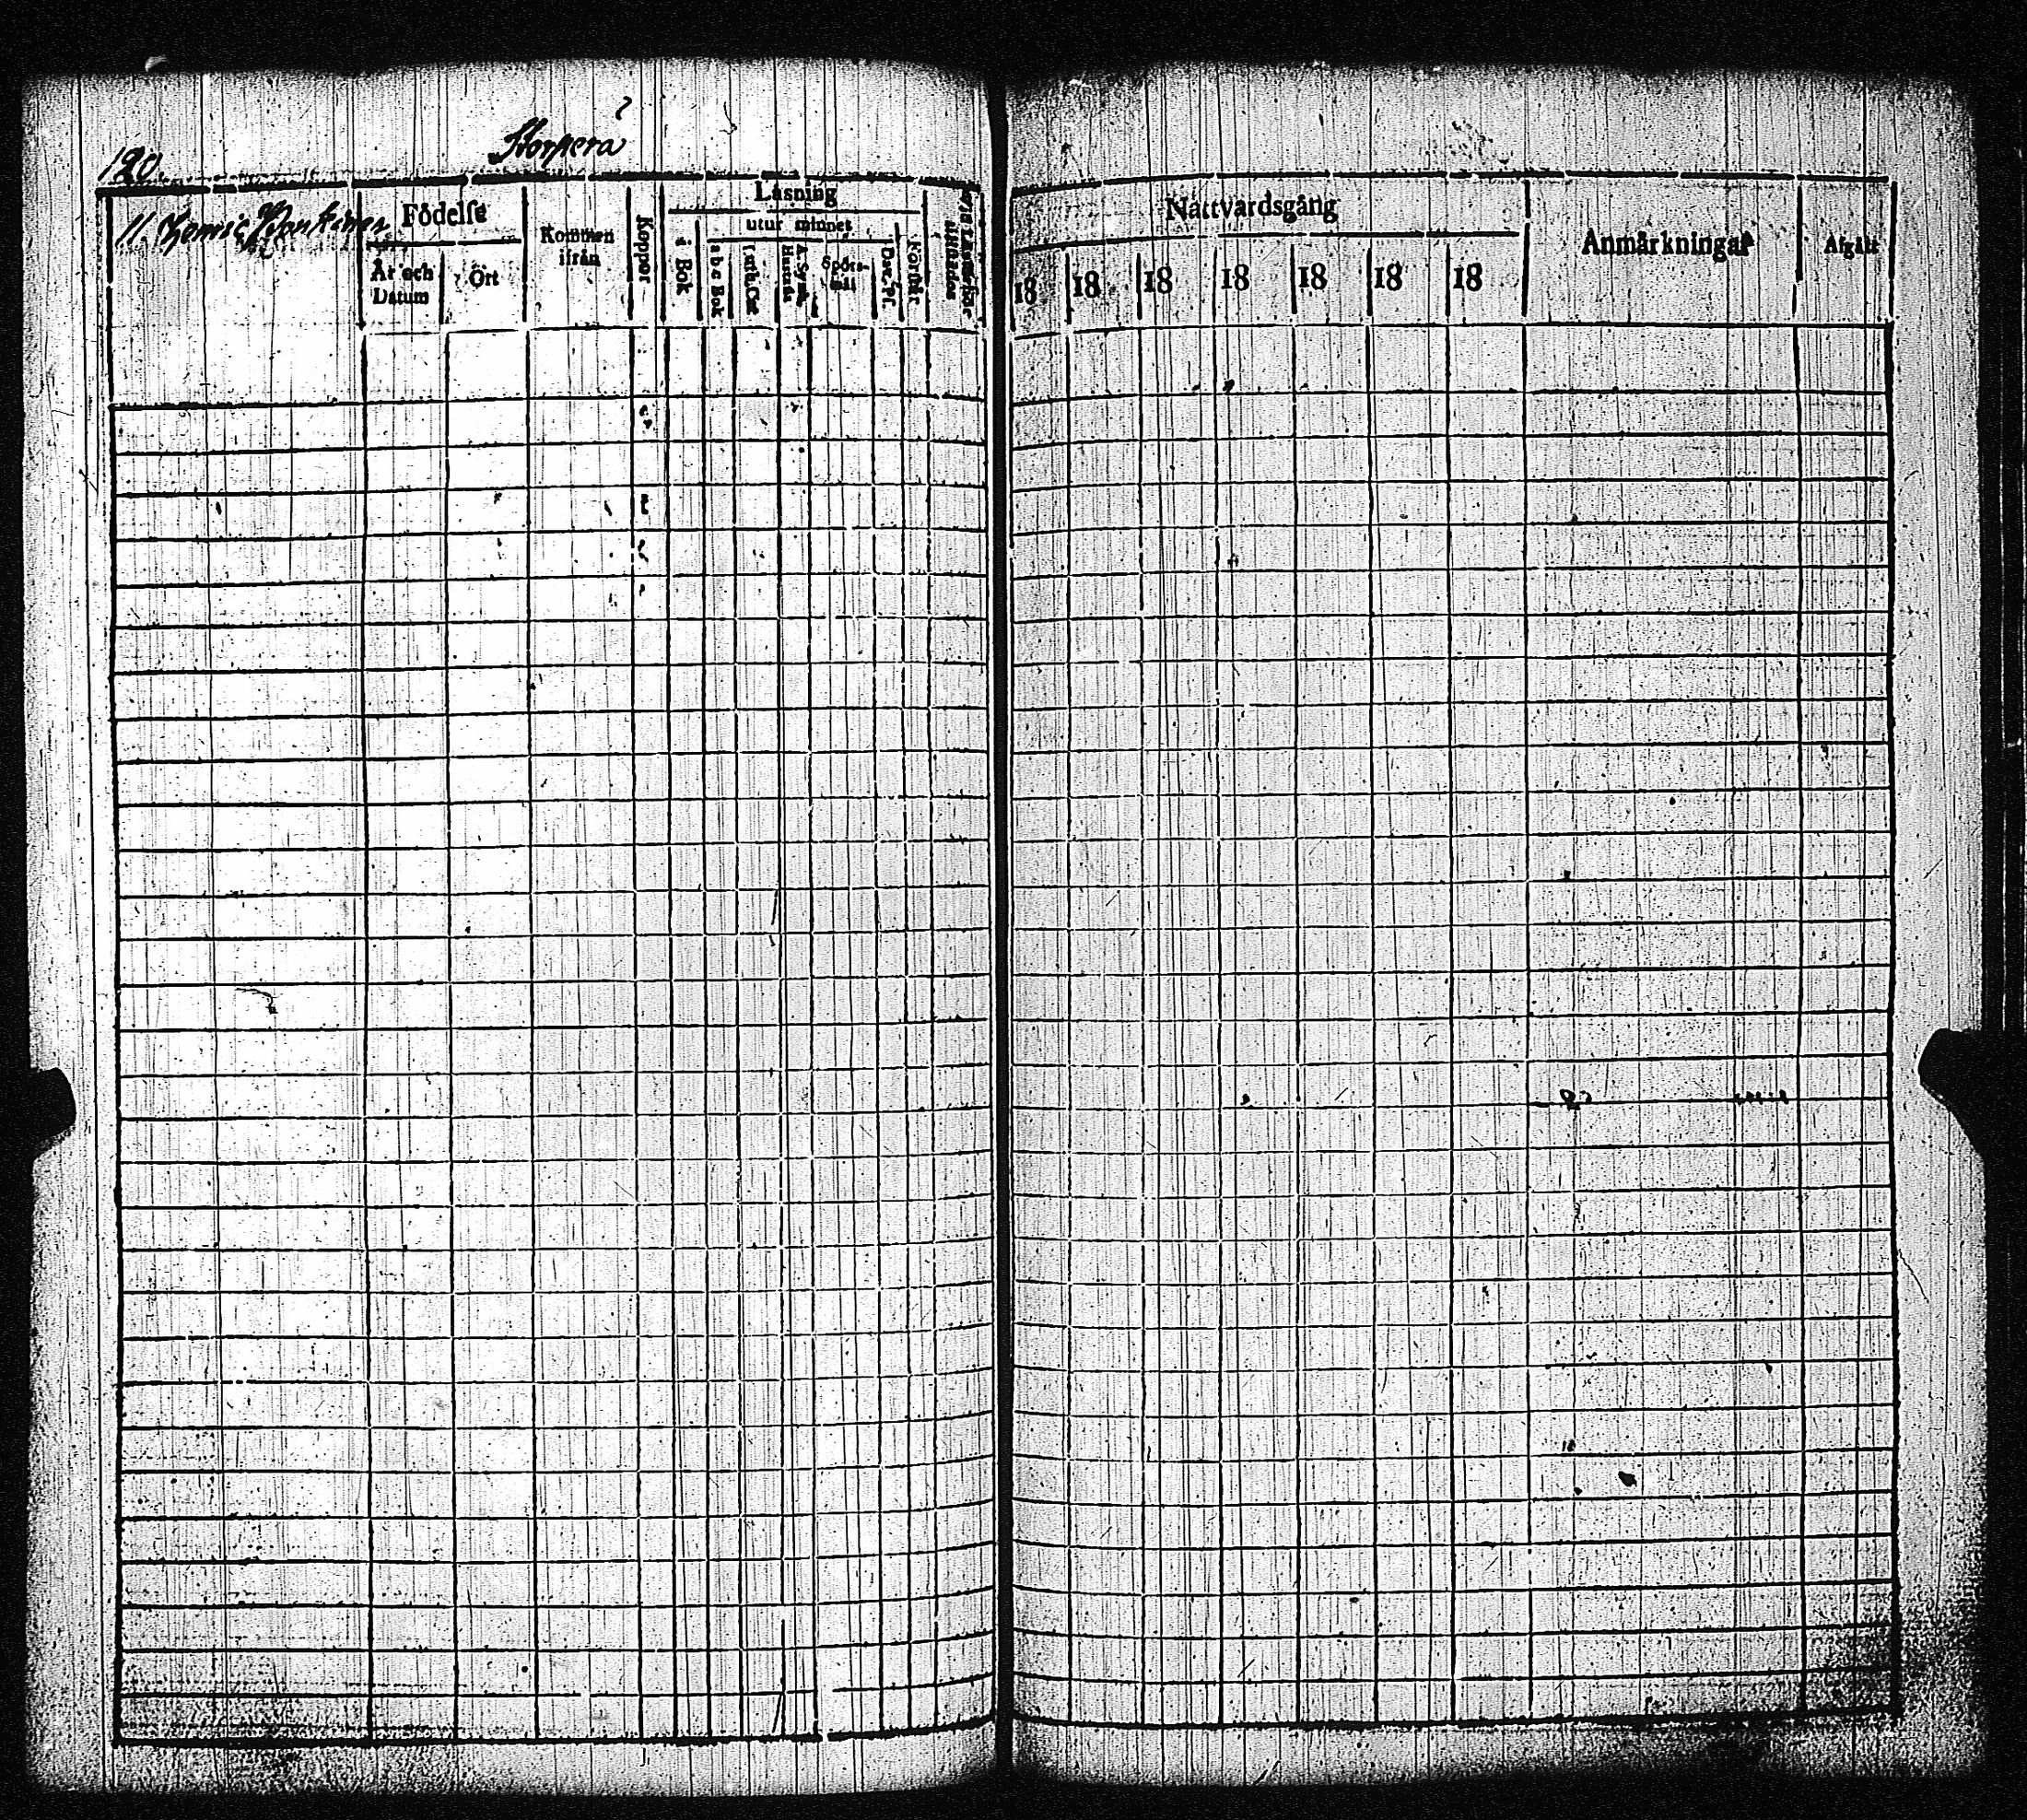 120.
Korperå
11.
Födelse
År och Datum
Ort
Kommen ifrån
Koppor
Läsning
utur minnet
i Bok
a b c Bok
Luth. Cat
A. Symb.
Hustafla
Spörs-mål
Dav. Ps.
Förstår
Nattvardsgång
18 18 18 18 18 18 18
Anmärkningar
Afgått